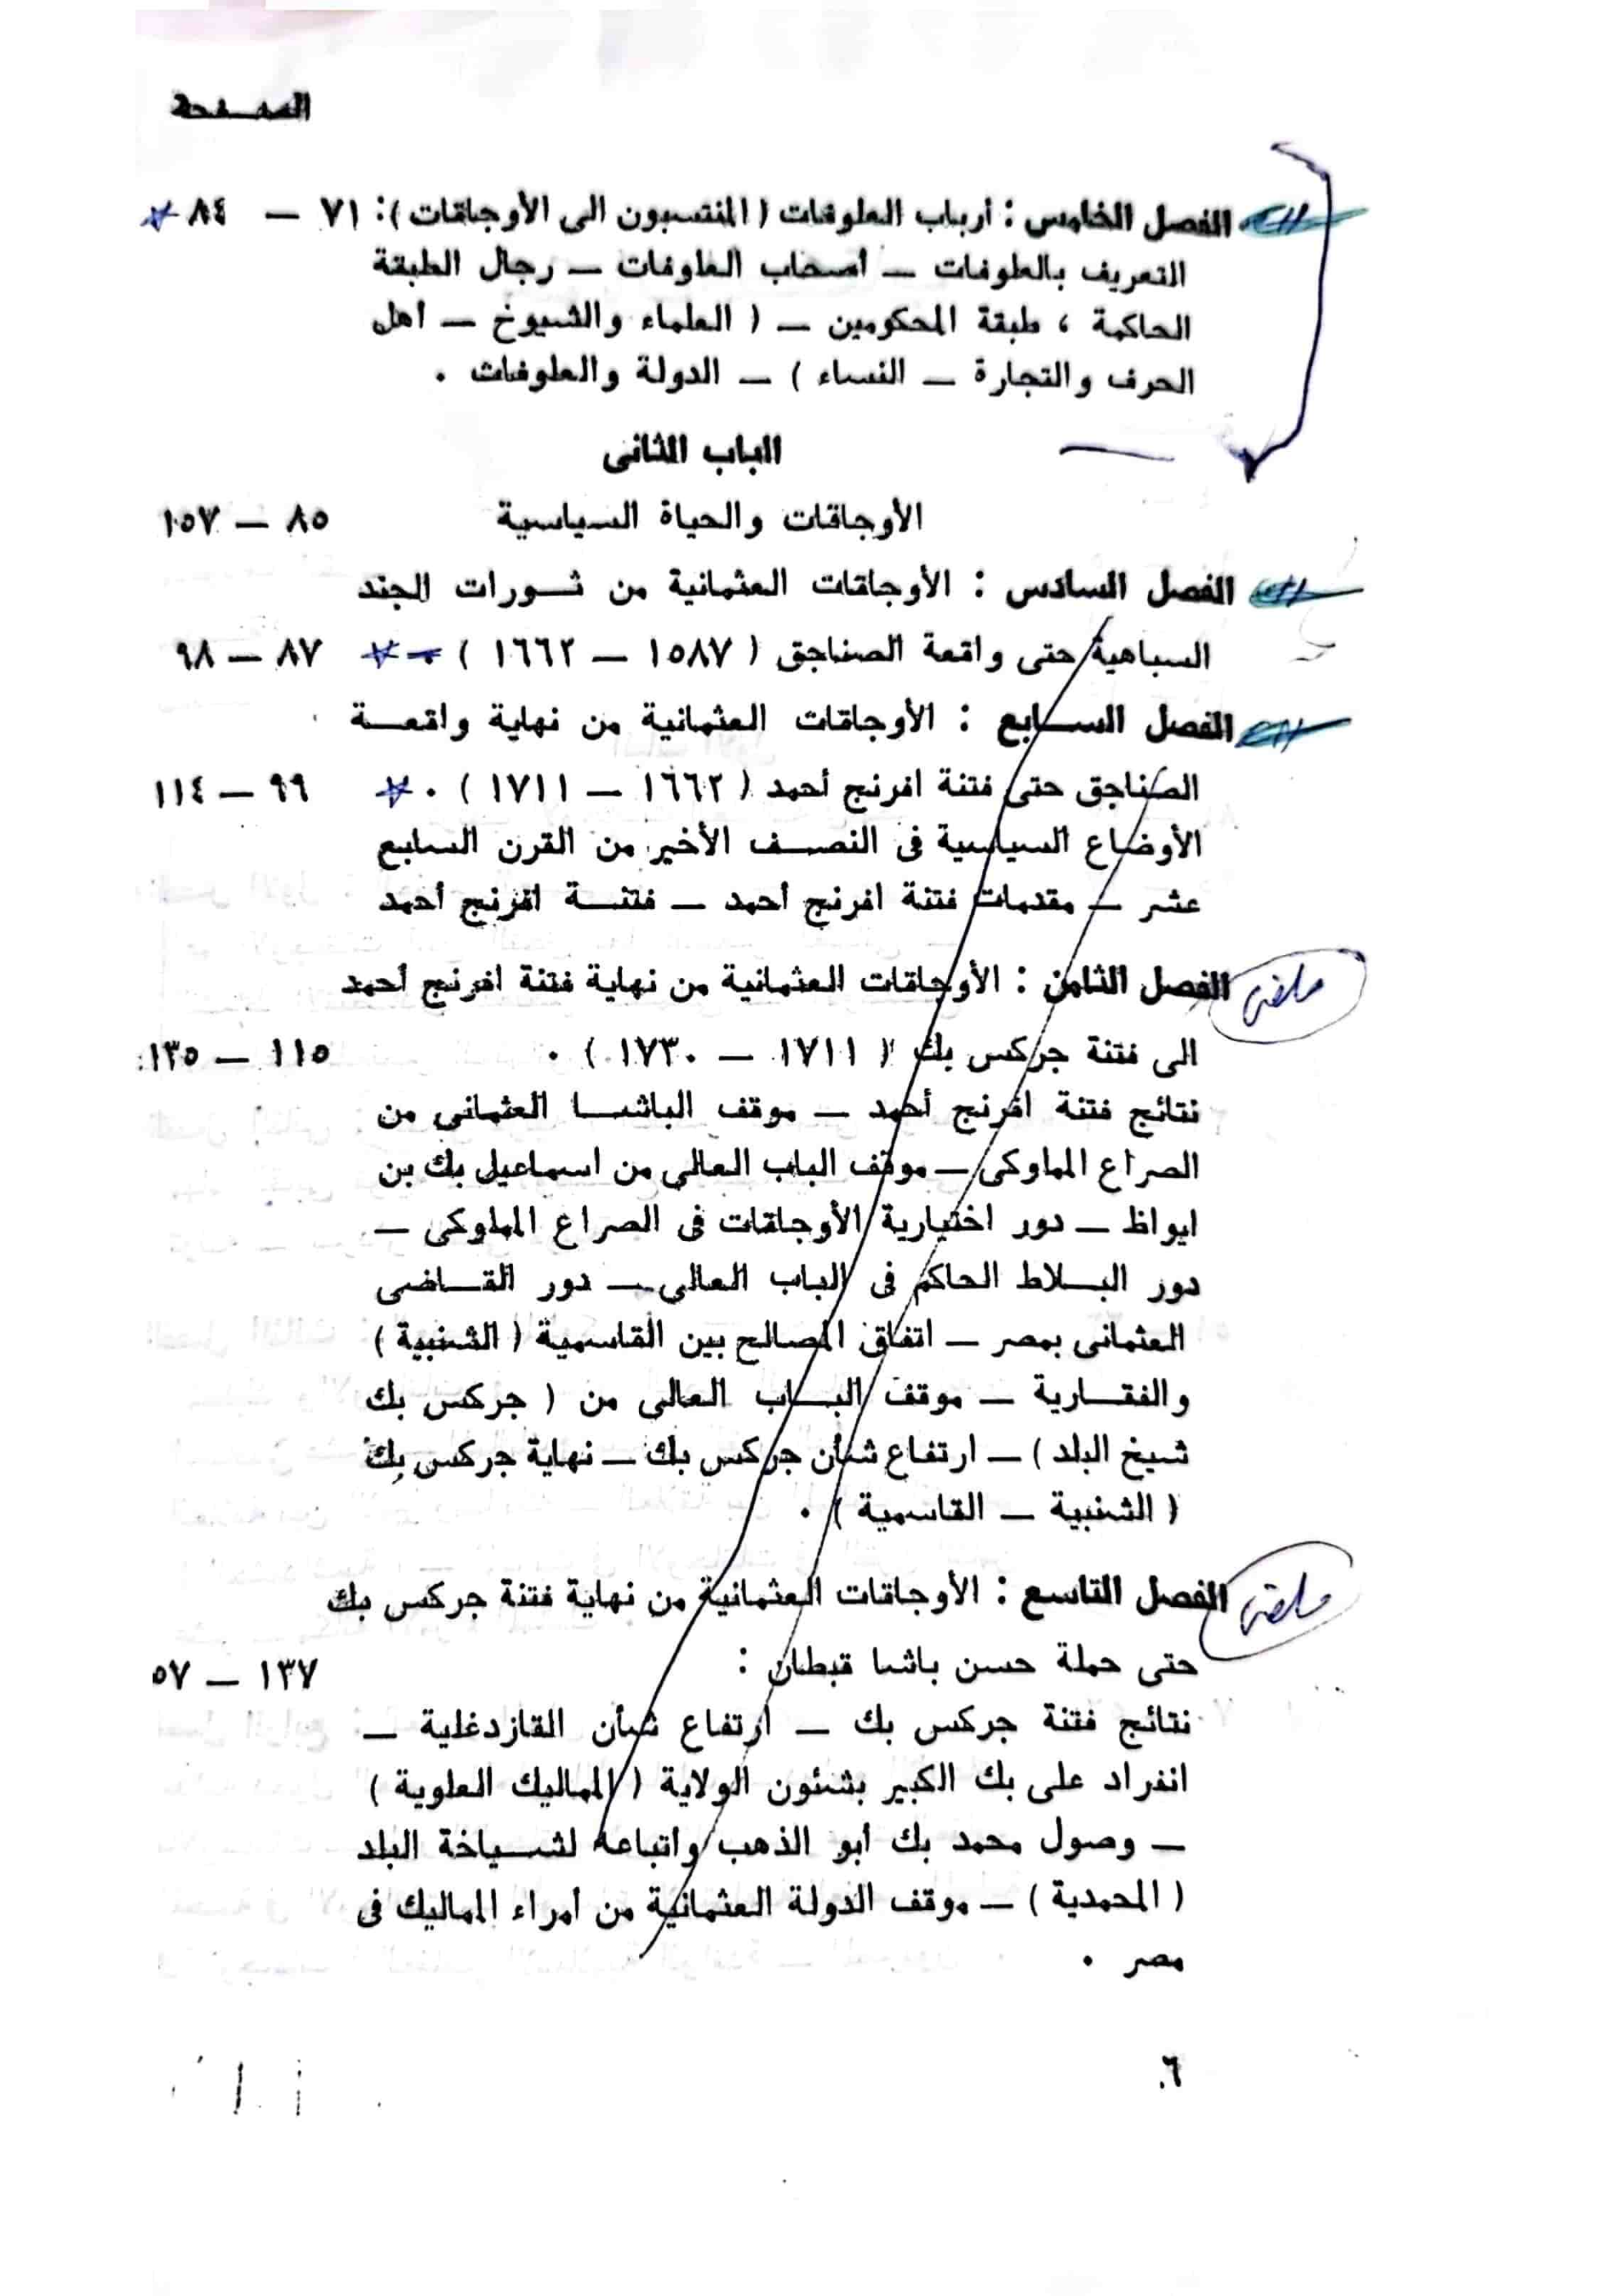 الصفحة
الفصل الخامس : أرباب العلوفات ( المنتسبون الى الأوجاقات ) : ٧١ — ٨٤
التعريف بالعلوفات — أصحاب العلوفات — رجال الطبقة
الحاكمة ، طبقة المحكومين — ( العلماء والشيوخ — أهل
الحرف والتجارة — النساء ) — الدولة والعلوفات .
الباب الثانى
الأوجاقات والحياة السياسية ٨٥ — ١٥٧
الفصل السادس : الأوجاقات العثمانية من ثورات الجند
السباهية حتى واقعة الصناجق ( ١٥٨٧ — ١٦٦٢ ) . ٨٧ — ٩٨
الفصل السابع : الأوجاقات العثمانية من نهاية واقعة
الصناجق حتى فتنة افرنج أحمد ( ١٦٦٢ — ١٧١١ ) . ٩٩ — ١١٤
الأوضاع السياسية فى النصف الأخير من القرن السابع
عشر — مقدمات فتنة افرنج أحمد — فتنة افرنج أحمد
الفصل الثامن : الأوجاقات العثمانية من نهاية فتنة افرنج أحمد
الى فتنة جركس بك ( ١٧١١ — ١٧٣٠ ) . ١١٥ — ١٣٥
نتائج فتنة افرنج أحمد — موقف الباشا العثمانى من
الصراع المملوكى — موقف الباب العالى من اسماعيل بك بن
ايواظ — دور اختيارية الأوجاقات فى الصراع المملوكى —
دور البلاط الحاكم فى الباب العالى — دور القاضى
العثمانى بمصر — اتفاق المصالح بين القاسمية ( الشنبية )
والفقارية — موقف الباب العالى من ( جركس بك
شيخ البلد ) — ارتفاع شأن جركس بك — نهاية جركس بك
( الشنبية — القاسمية ) .
الفصل التاسع : الأوجاقات العثمانية من نهاية فتنة جركس بك
حتى حملة حسن باشا قبطان : ١٣٧ — ٥٧
نتائج فتنة جركس بك — ارتفاع شأن القازدغلية —
انفراد على بك الكبير بشئون الولاية ( المماليك العلوية )
— وصول محمد بك أبو الذهب وأتباعه لشياخة البلد
( المحمدية ) — موقف الدولة العثمانية من أمراء المماليك فى
مصر .
٦